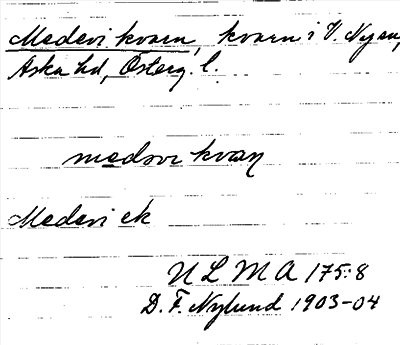 Medevi kvarn, kvarn i V. Ny sn,
Aska hd, Österg. l.
medəvi kvaṇ
Medevi ek
N L M A 175:8
D. F. Nylund 1903-04